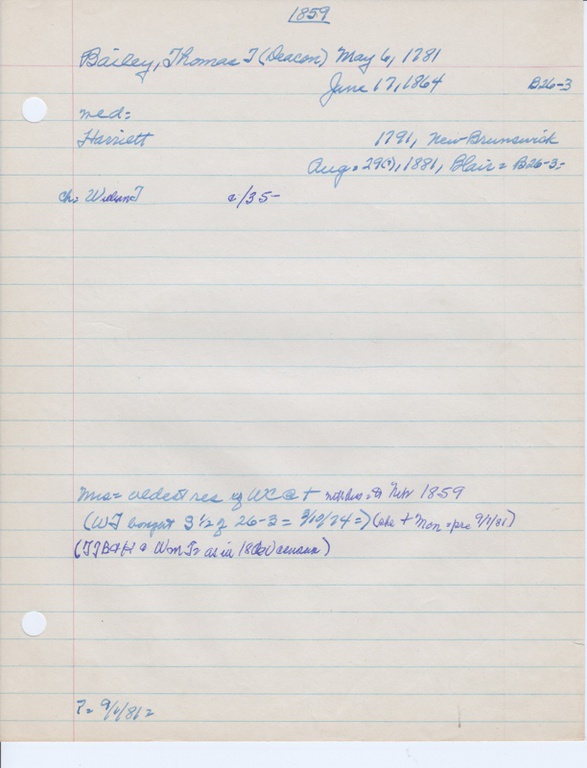 1859
Bailey, Thomas T (Deacon) May 6, 1781
June 17, 1864 B26-3
med=
Harriett 1791, New Brunswick
Aug. 29(?), 1881, Blair = B26-3=
Ch= T c/35-
Mrs= oldest res of WC 1859
(WT bought S 1/2 of 26-3 = 3/10/74=) (she + Mon=pre 9/1/81)
(TTB+H + Wm T= as in census)
T= 9/1/81=